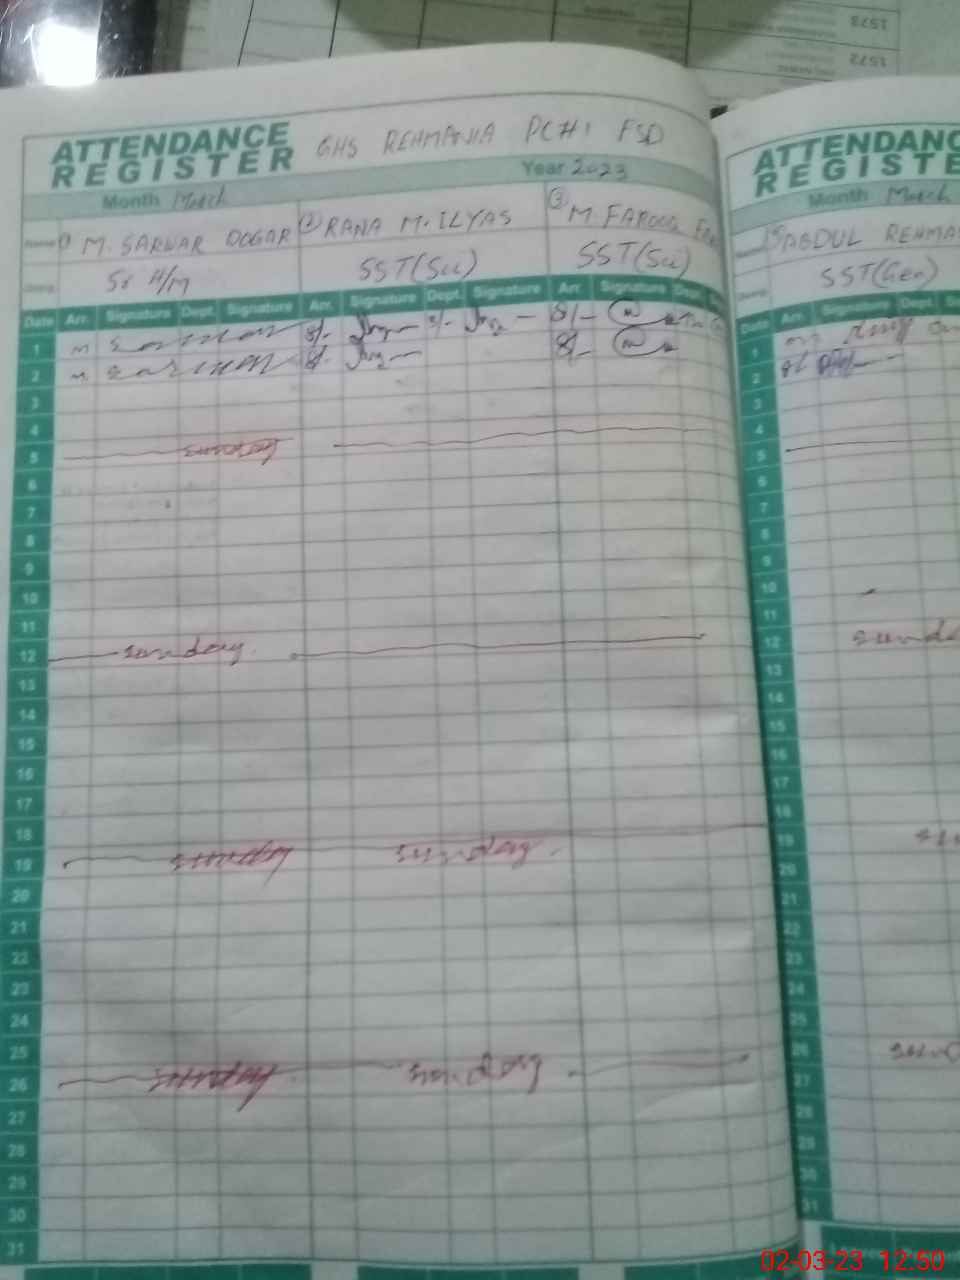 1573
1572
ATTENDANCE
REGISTER
GHS REHMANIA PCHI FSD
Year 2023
Month March
Name 1 M. SARWAR DOGAR
2 RANA M. ILYAS
3 M. FAROOQ
Desig. Sr H/M
SST(Sci)
SST(Sci)
Date Arr. Signature Dept. Signature Arr. Signature Dept. Signature Arr. Signature Dept.
1
2
3
4
5 sunday
6
7
8
9
10
11
12 sunday
13
14
15
16
17
18
19 sunday sunday
20
21
22
23
24
25
26 sunday sunday
27
28
29
30
31
ATTENDANC
REGISTE
Month March
ABDUL REHMA
SST(Gen)
Date Arr. Signature Dept.
1
2
3
4
5
6
7
8
9
10
11
12 sunda
13
14
15
16
17
18
19 su
20
21
22
23
24
25
26 sund
27
28
29
30
31
02-03-23 12:50